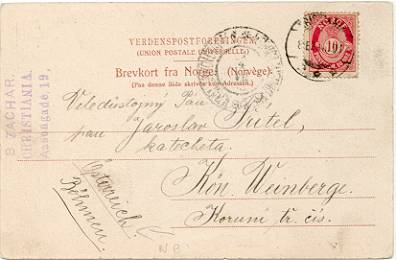 VERDENSPOSTFORENINGEN
(UNION POSTALE UNIVERSELLE)
Brevkort fra Norge (Norvège).
(Paa denne Side skrives kun Adressen.)
B. ZACHAR.
CHRISTIANIA,
10
Veledůstojný Pán
pan Jaroslav
katecheta.
Kön. Weinberge.
Koruní tř. čís.
Österreich
Böhmen.
N.B.